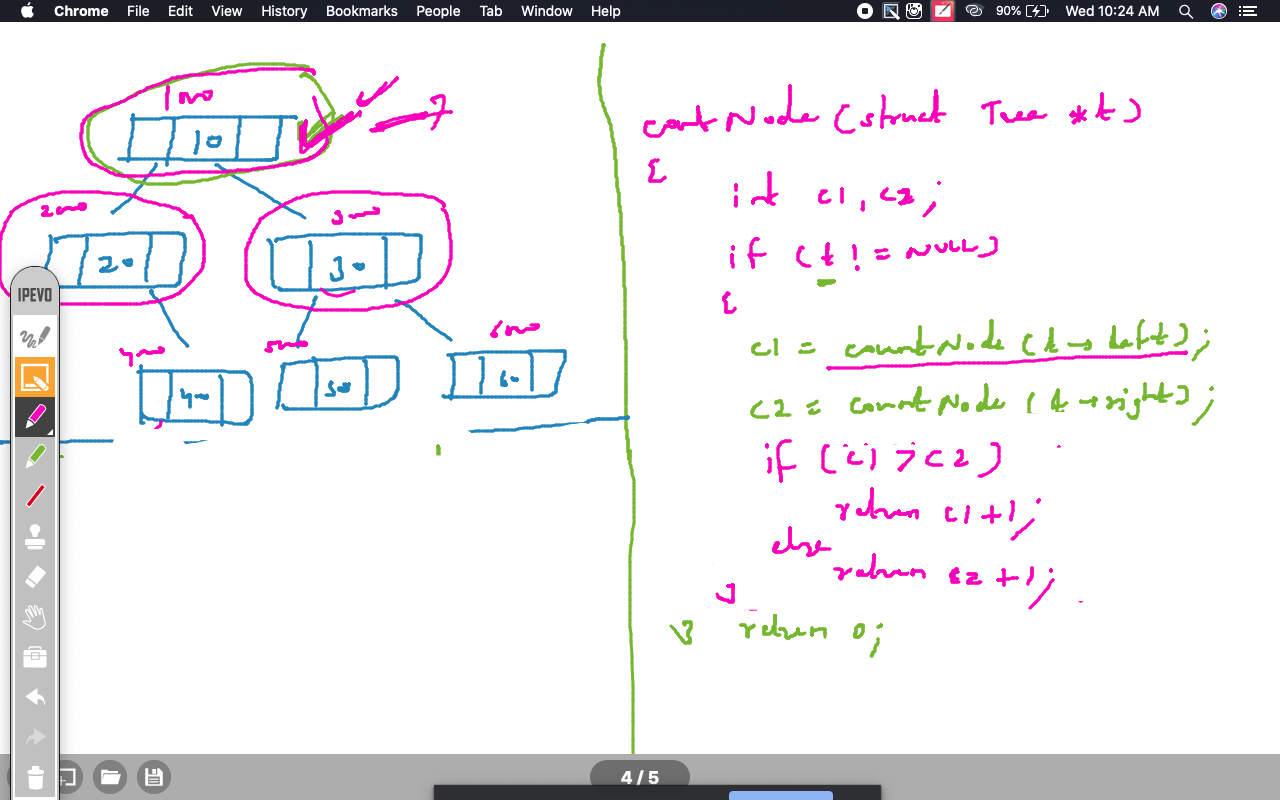 Chrome File Edit View History Bookmarks People Tab Window Help 90% Wed 10:24 AM
1000
10
2000
3000
20
30
IPEVO
4000
5000
6000
40
50
60
countNode (struct Tree *t)
{
int c1, c2;
if (t != NULL)
{
c1 = countNode (t → left);
c2 = countNode (t → right);
if (c1 > c2)
return c1+1;
else
return c2+1;
}
} return 0;
4 / 5